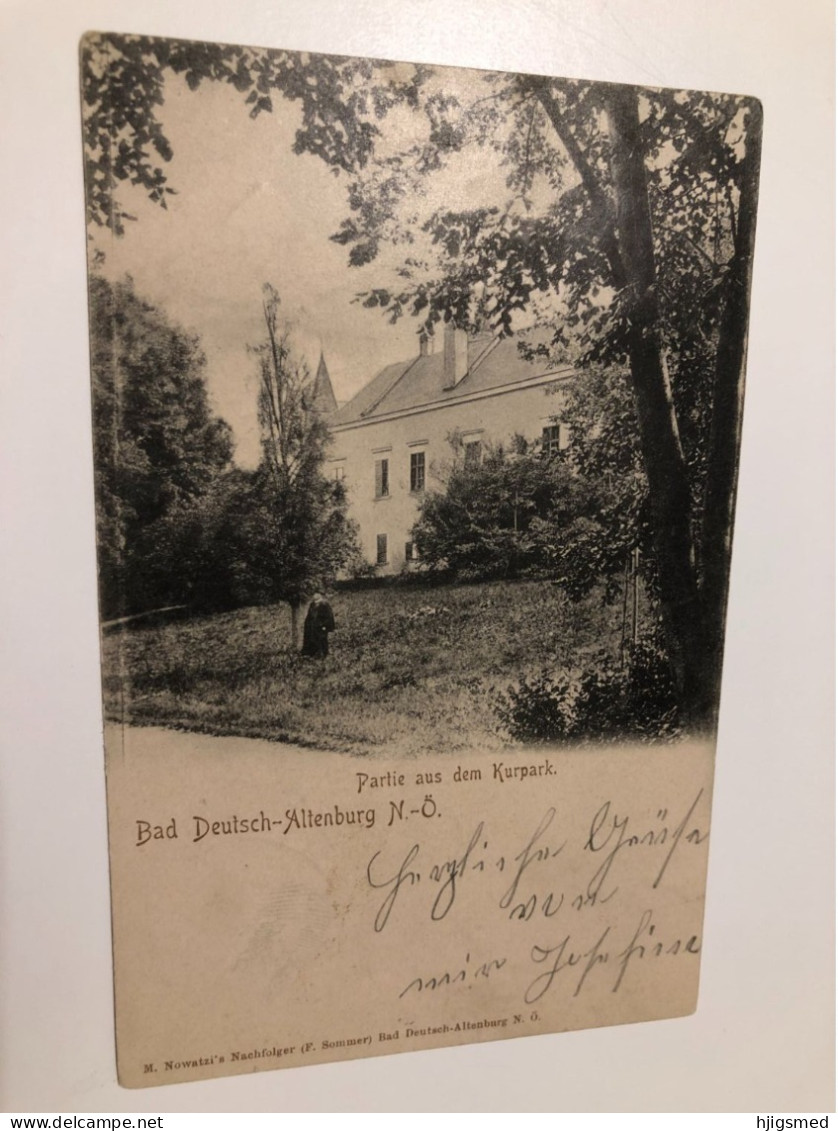 Partie aus dem Kurpark.
Bad Deutsch-Altenburg N.-Ö.
Herzliche Grüße
von
mir Josefine
M. Nowatzi's Nachfolger (F. Sommer) Bad Deutsch-Altenburg N. Ö.
hjigsmed